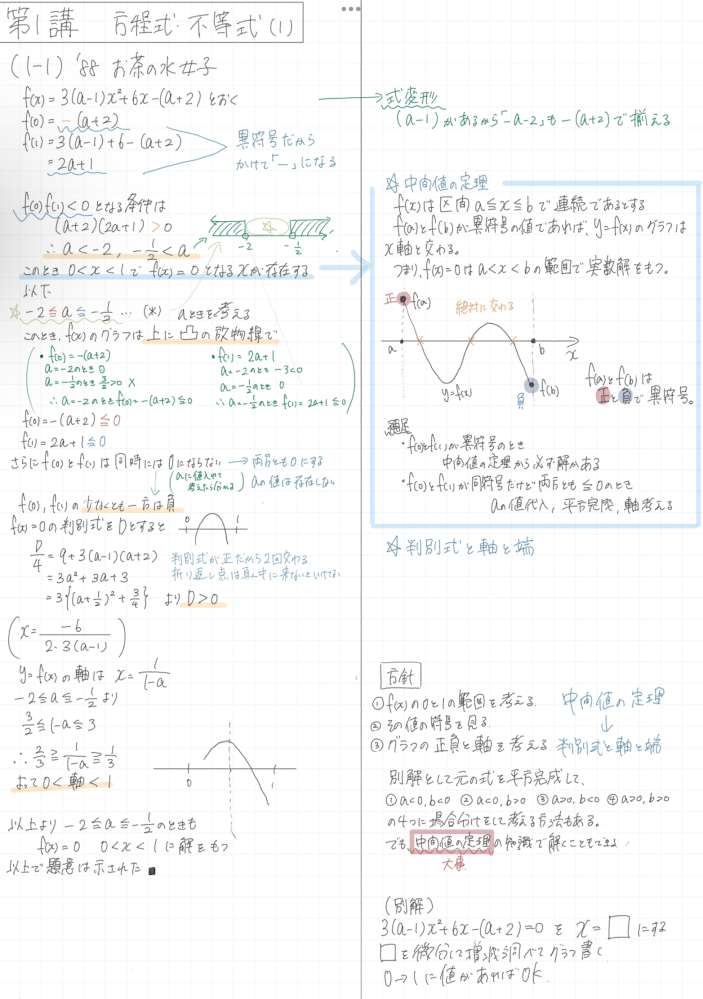 第1講 方程式・不等式(1)
(1-1) '88 お茶の水女子
f(x) = 3(a-1)x²+6x-(a+2) とおく
f(0) = -(a+2)
f(1) = 3(a-1)+6-(a+2)
= 2a+1
異符号だから
かけて「-」になる
f(0)f(1)<0 となる条件は
(a+2)(2a+1) > 0
∴ a < -2, -1/2 < a
-2 -1/2
このとき 0<x<1 で f(x)=0 となる x が存在する
以下
☆ -2 ≦ a ≦ -1/2 … (*) aときを考える
このとき、f(x)のグラフは上に凸の放物線で
・f(0) = -(a+2)
a=-2のとき 0
a=-1/2のとき 3/2>0 ×
∴ a=-2のとき f(0)=-(a+2)≦0
・f(1) = 2a+1
a=-2のとき -3<0
a=-1/2のとき 0
∴ a=-1/2のとき f(1)=2a+1≦0
f(0) = -(a+2) ≦ 0
f(1) = 2a+1 ≦ 0
さらに f(0)と f(1)は 同時には 0にならない → 両方とも0にする
aの値は存在しない
(aに値入れて
考えたら分かる)
f(0), f(1) の少なくとも一方は負
f(x)=0の判別式をDとすると
0 1
D/4 = 9+3(a-1)(a+2)
= 3a²+3a+3
= 3{(a+1/2)²+3/4} より D>0
判別式が正だから2回交わる
折り返し点は真ん中に来ないといけない
(x = -6/2・3(a-1))
y=f(x) の軸は x = 1/1-a
-2≦a≦-1/2 より
3/2≦1-a≦3
∴ 2/3 ≧ 1/1-a ≧ 1/3
よって 0 < 軸 < 1
0 1
以上より -2≦a≦-1/2 のときも
f(x)=0 0<x<1 に解をもつ
以上で題意は示された ■
→ 式変形
(a-1) があるから「-a-2」も -(a+2) で揃える
☆ 中間値の定理
f(x)は区間 a≦x≦b で連続であるとする
f(a)とf(b)が異符号の値であれば、y=f(x)のグラフは
x軸と交わる。
つまり、f(x)=0は a<x<b の範囲で実数解をもつ。
正 f(a)
絶対に交わる
a b x
y=f(x) 負 f(b)
f(a)とf(b)は
正と負で異符号。
補足
・f(0)とf(1)が異符号のとき
中間値の定理から必ず解がある
・f(0)とf(1)が同符号だけど両方とも≦0のとき
aの値代入, 平方完成, 軸考える
☆ 判別式と軸と端
方針
① f(x)の0と1の範囲を考える. 中間値の定理
② その値の符号を見る. ↓
③ グラフの正負と軸を考える 判別式と軸と端
別解として元の式を平方完成して、
① a<0, b<0 ② a<0, b>0 ③ a>0, b<0 ④ a>0, b>0
の4つに場合分けをして考える方法もある。
でも、中間値の定理の知識で解くこともできる
大事
(別解)
3(a-1)x²+6x-(a+2)=0 を x = □ にする
□を微分して増減調べてグラフ書く
0→1に値があればOK.